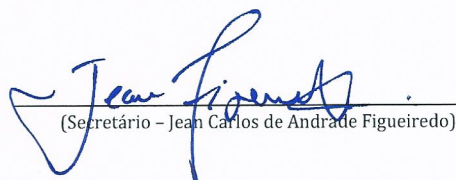 Jean Figueiredo
(Secretário – Jean Carlos de Andrade Figueiredo)